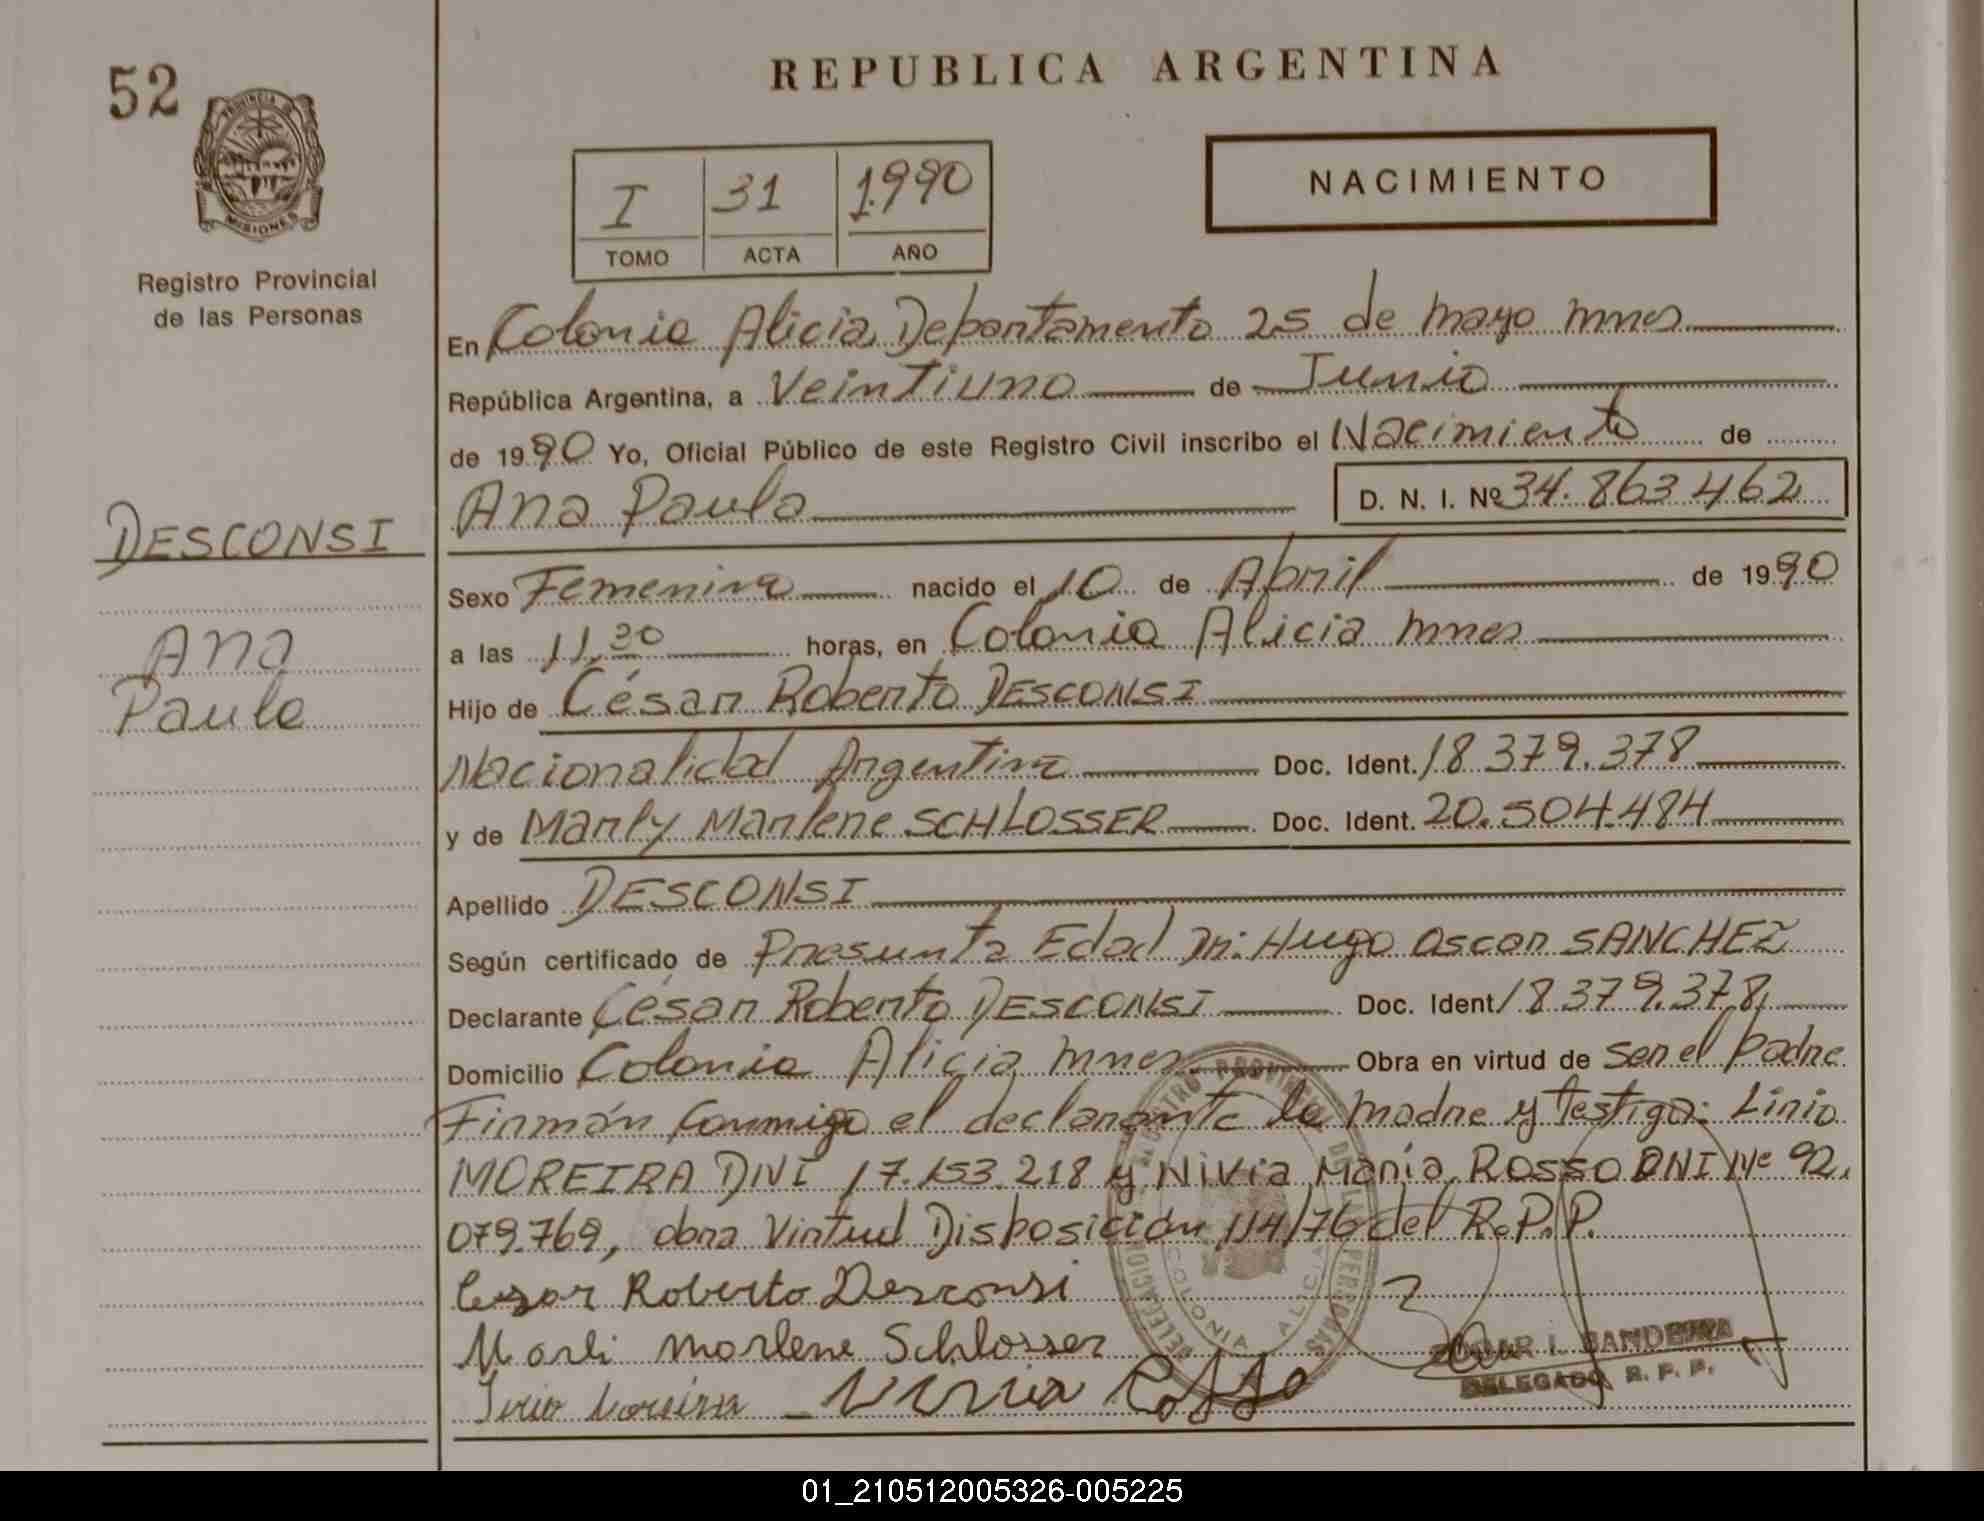 52
PROVINCIA DE
MISIONES
Registro Provincial
de las Personas
DESCONSI
Ana
Paula
REPUBLICA ARGENTINA
I 31 1.990
TOMO ACTA AÑO
NACIMIENTO
En Colonia Alicia, Departamento 25 de mayo mnes
República Argentina, a Veintiuno de Junio
de 1990 Yo, Oficial Público de este Registro Civil inscribo el Nacimiento de
Ana Paula D. N. I. Nº 34.863462
Sexo Femenino nacido el 10 de Abril de 1990
a las 11,30 horas, en Colonia Alicia mnes
Hijo de César Roberto DESCONSI
Nacionalidad Argentina Doc. Ident. 18.379.378
y de Marly Marlene SCHLOSSER Doc. Ident. 20.504.484
Apellido DESCONSI
Según certificado de Presunta Edad Dr: Hugo Oscar SANCHEZ
Declarante César Roberto DESCONSI Doc. Ident 18.379.378,
Domicilio Colonia Alicia mnes Obra en virtud de ser el padre
Firmán Conmigo el declarante la madre y testigo: Lirio
MOREIRA DNI 17.153.218 y Nivia María Rosso DNI Nº 92.
079.769, obra Virtud Disposición 114/76 del R.P.P.
Cesar Roberto Desconsi
Marli Marlene Schlosser
Lirio Moreira Nivia Rosso
DELEGACION REGISTRO PROVINCIAL DE LAS PERSONAS
COLONIA ALICIA
I. BANDEIRA
DELEGADO R. P. P.
01_210512005326-005225